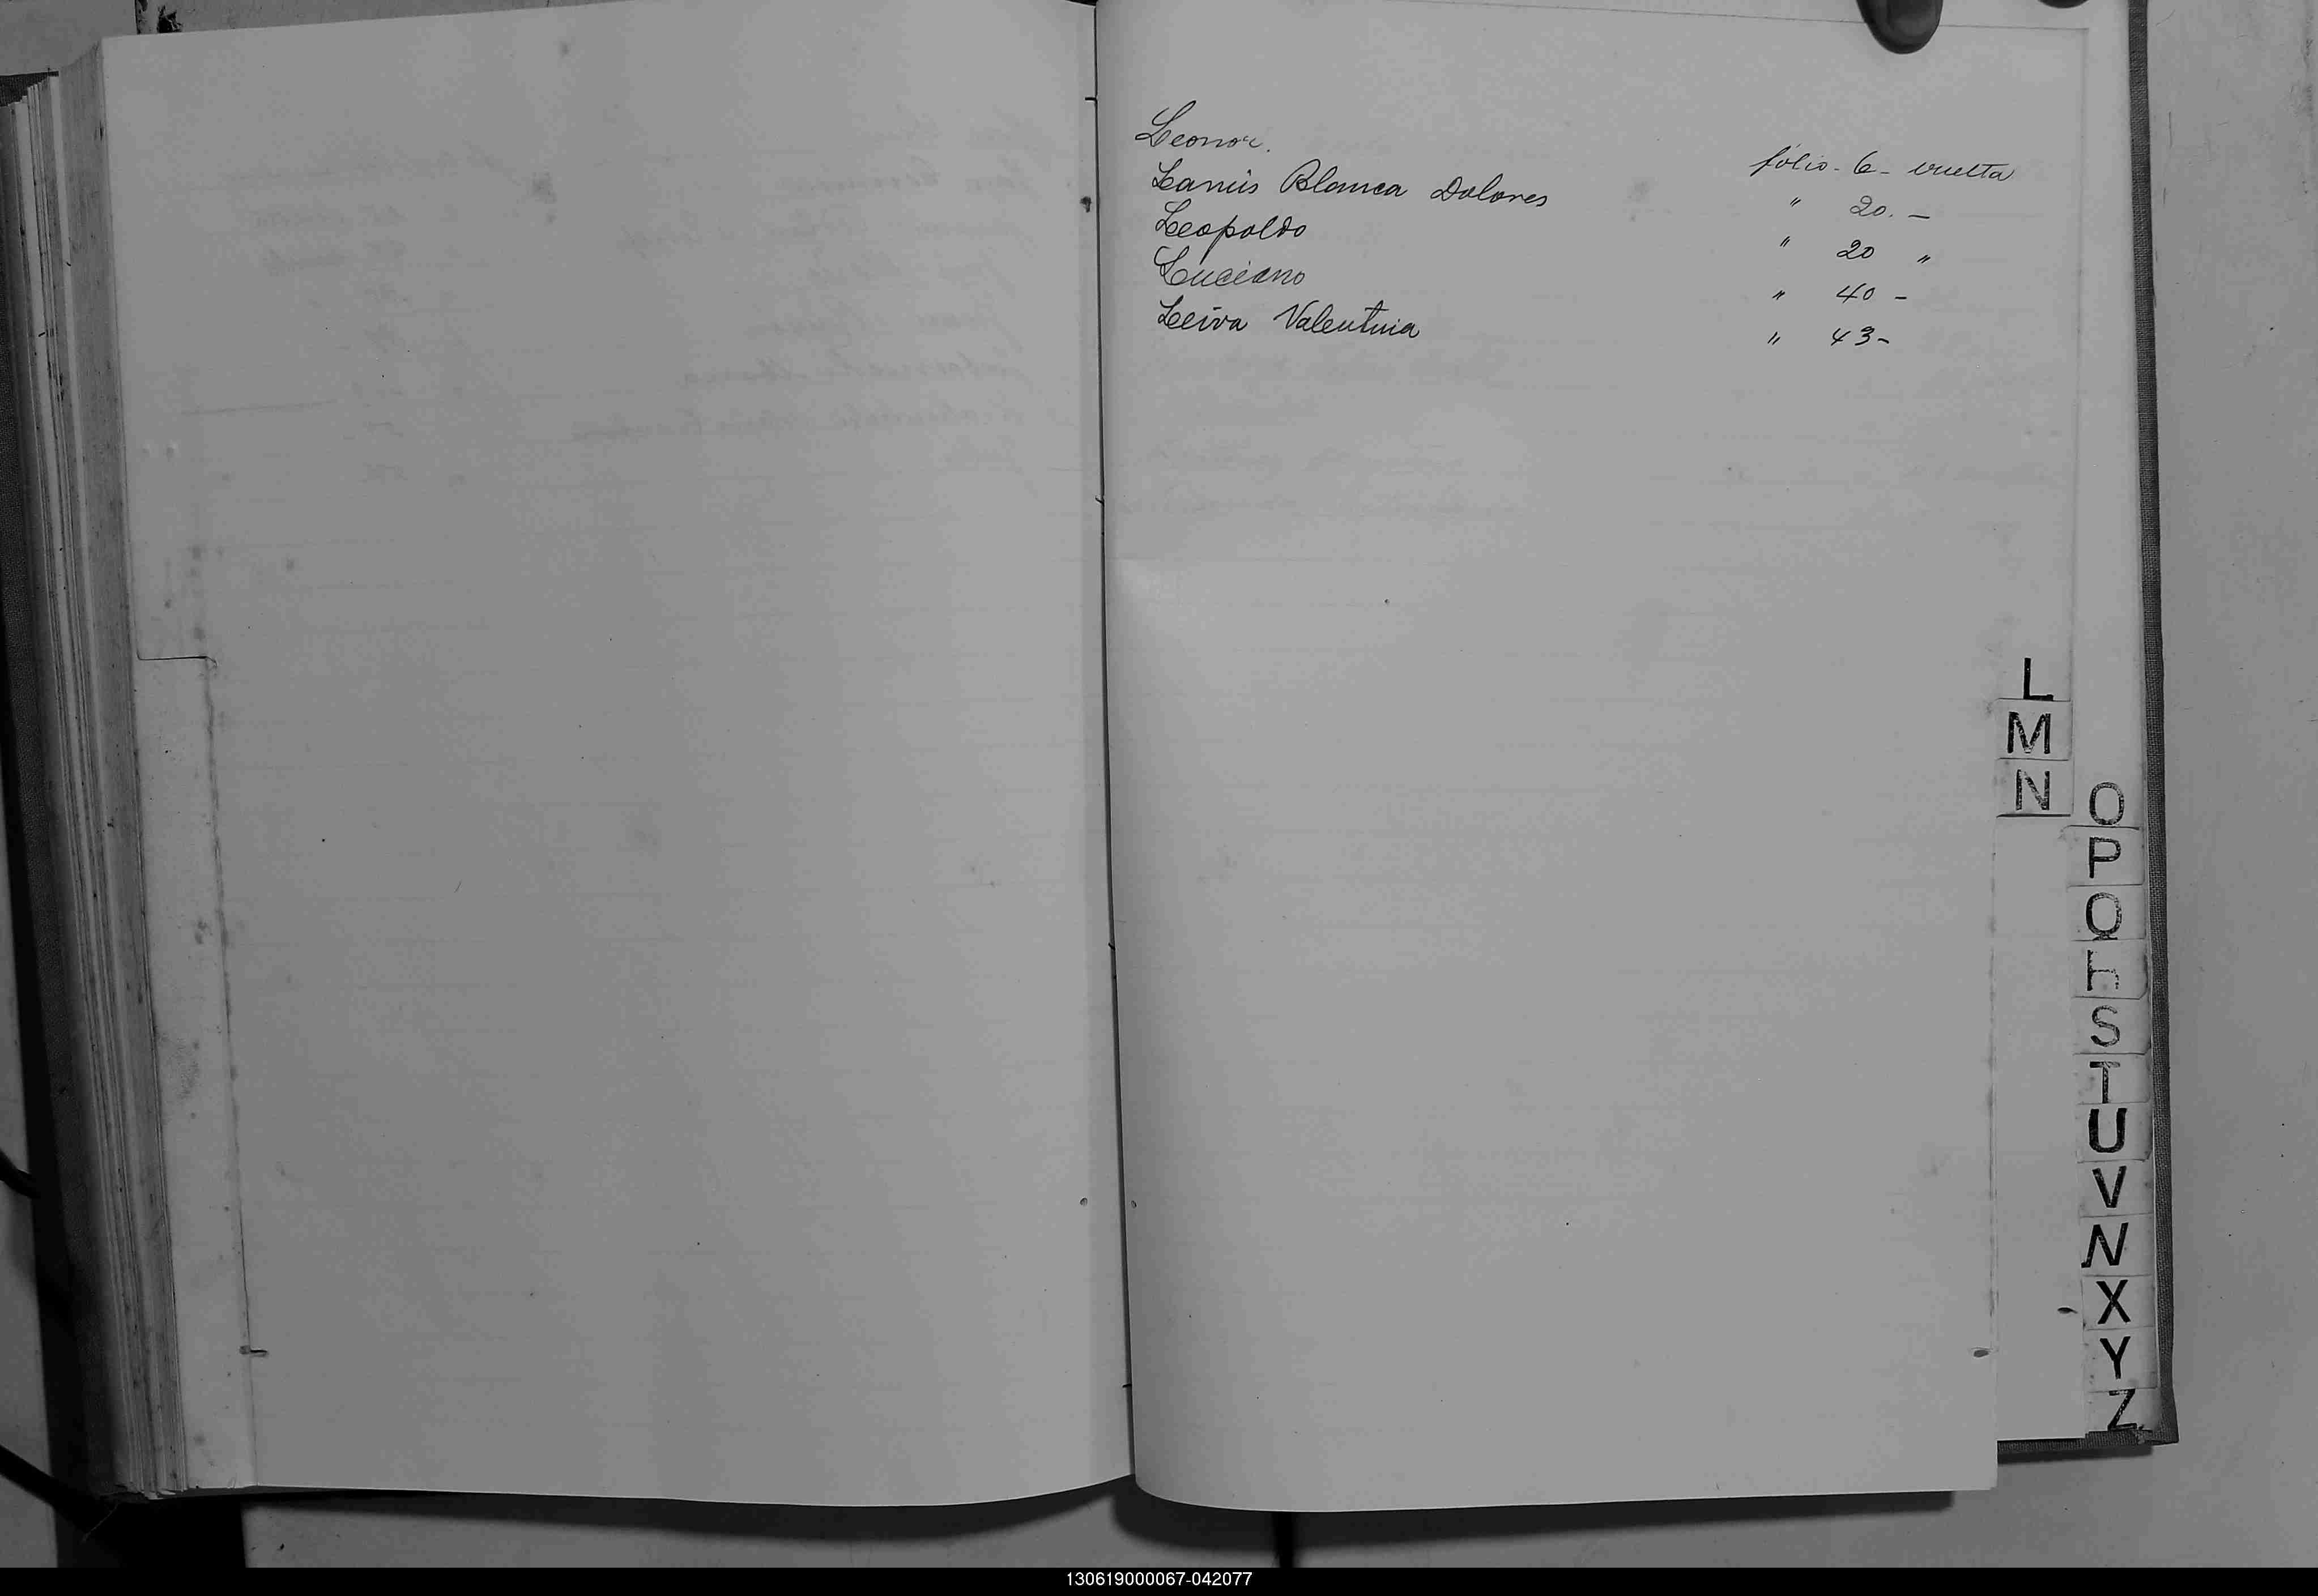 Leonor. folio - 6 - vuelta
Lanús Blanca Dolores " 20. -
Leopoldo " 20 "
Luciano " 40 -
Leiva Valentina " 43 -
L
M
N
O
P
Q
R
S
T
U
V
X
Y
Z
130619000067-042077